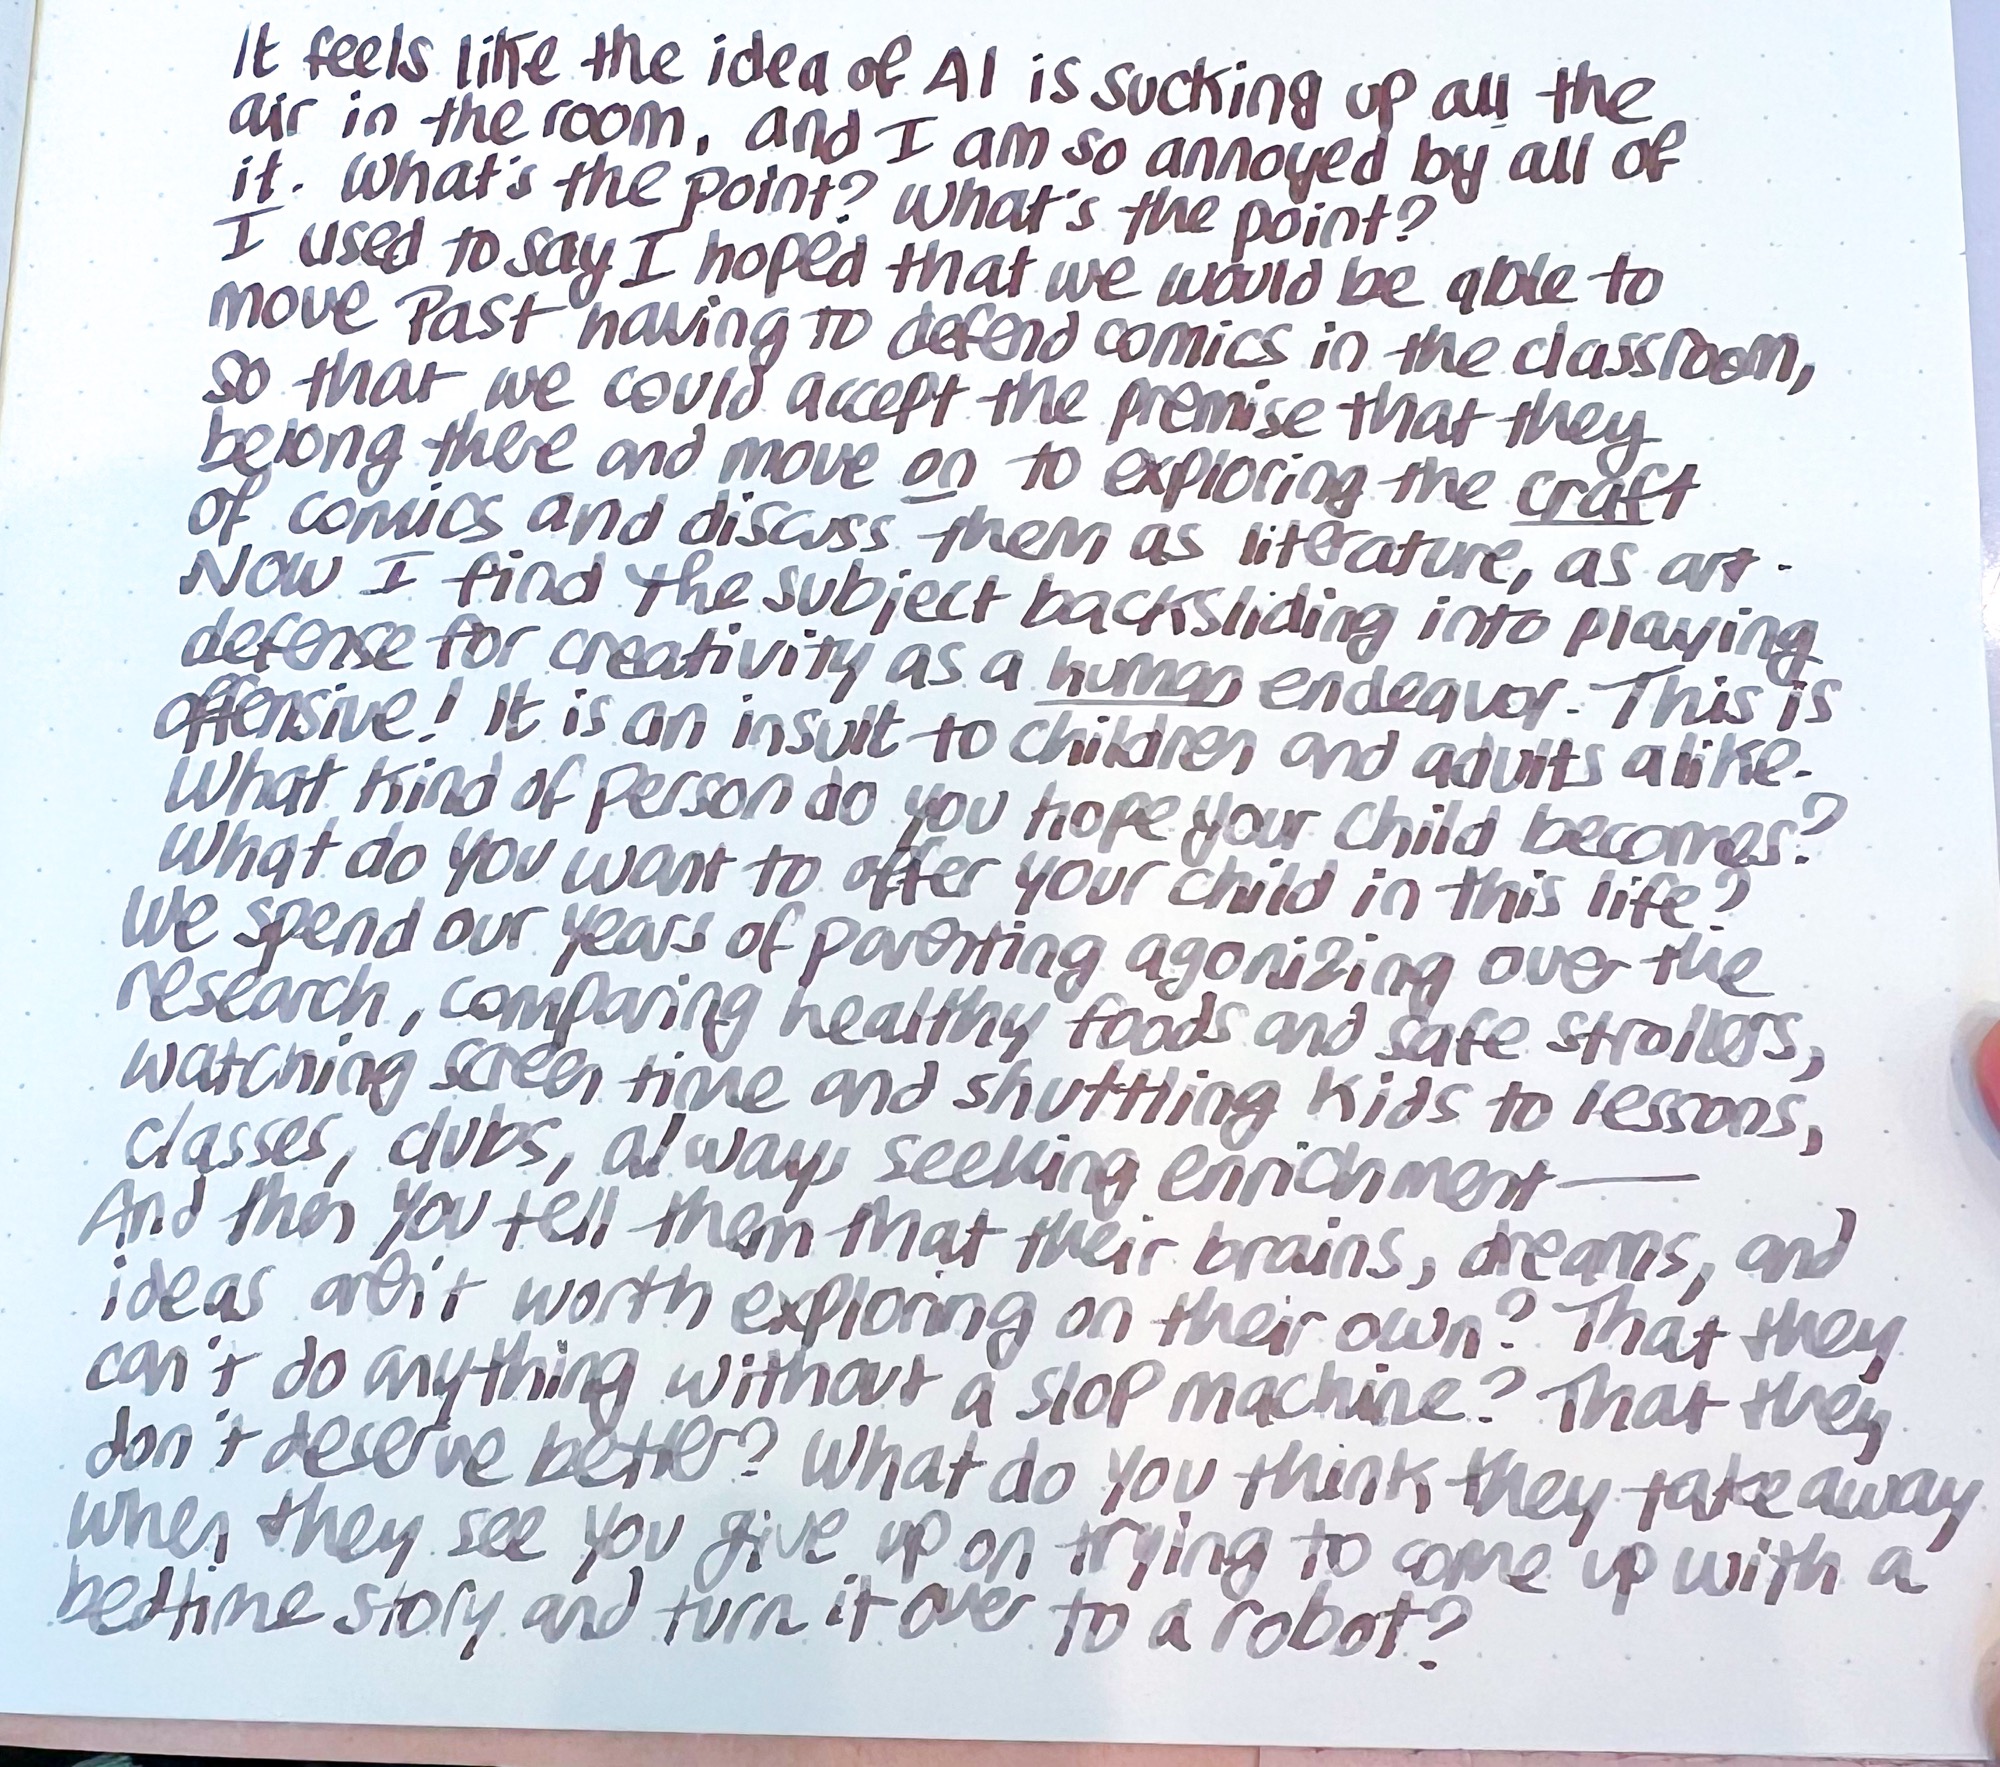 It feels like the idea of AI is sucking up all the
air in the room, and I am so annoyed by all of
it. What's the point? What's the point?
I used to say I hoped that we would be able to
move past having to defend comics in the classroom,
so that we could accept the premise that they
belong there and move on to exploring the craft
of comics and discuss them as literature, as art.
Now I find the subject backsliding into playing
defense for creativity as a human endeavor. This is
offensive! It is an insult to children and adults alike.
What kind of person do you hope your child becomes?
What do you want to offer your child in this life?
We spend our years of parenting agonizing over the
research, comparing healthy foods and safe strollers,
watching screen time and shuttling kids to lessons,
classes, clubs, always seeking enrichment—
And then you tell them that their brains, dreams, and
ideas aren't worth exploring on their own? That they
can't do anything without a slop machine? That they
don't deserve better? What do you think they take away
when they see you give up on trying to come up with a
bedtime story and turn it over to a robot?